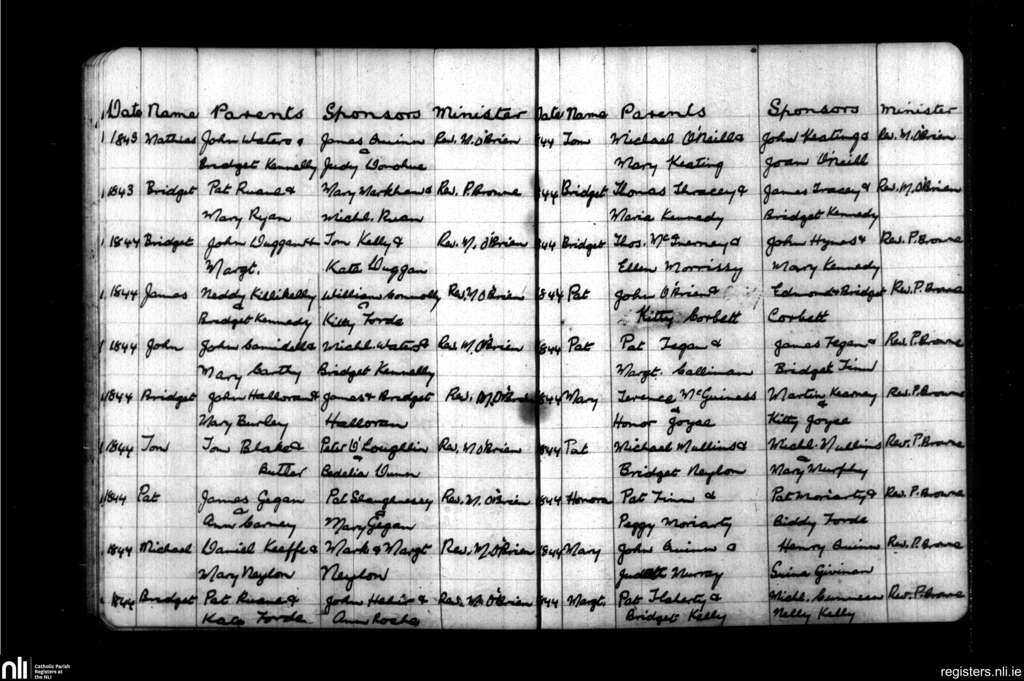 Date Name Parents Sponsors Minister
1843 Mathias John Waters & James Quinn Rev. M. O'Brien
Bridget Kennelly & Judy Donohue
1843 Bridget Pat Ruane & Mary Markham & Rev. P. Browne
Mary Ryan Michl. Ruan
1844 Bridget John Duggan & Tom Kelly & Rev. M. O'Brien
Margt. Kate Duggan
1844 James Neddy Killikelly William Connolly Rev. M. O'Brien
& Bridget Kennedy & Kitty Forde
1844 John John & Michl. Waters & Rev. M. O'Brien
Mary Carthy Bridget Kennelly
1844 Bridget John Halloran & James & Bridget Rev. M. O'Brien
Mary Burley Halloran
1844 Tom Tom Blake & Peter O'Loughlin Rev. M. O'Brien
Butler & Bedelia
1844 Pat James Gegan Pat Shaughnessy Rev. M. O'Brien
& Ann Carney & Mary Gegan
1844 Michael Daniel Keaffe & Mark & Margt Rev. M. O'Brien
Mary Neylon Neylon
1844 Bridget Pat Ruane & John & Rev. M. O'Brien
Kate Forde Ann Roche
Date Name Parents Sponsors Minister
44 Tom Michael O'Neill & John Keating & Rev. M. O'Brien
Mary Keating Joan O'Neill
44 Bridget Thomas Thracey & James Tracey & Rev. M. O'Brien
Maria Kennedy Bridget Kennedy
44 Bridget Thos. McInerney & John Hynes & Rev. P. Browne
Ellen Morrissy Mary Kennedy
1844 Pat John O'Brien & Edmond & Bridget Rev. P. Browne
Kitty Corbett Corbett
1844 Pat Pat Fegan & James Fegan & Rev. P. Browne
Margt. Callinan Bridget Finn
1844 Mary Terence McGuiness Martin Kearney Rev. P. Browne
& Honor Joyce & Kitty Joyce
1844 Pat Michael Mullins & Michl. Mullins Rev. P. Browne
Bridget Neylon & Mary Murphy
1844 Honora Pat Finn & Pat Moriarty & Rev. P. Browne
Peggy Moriarty Biddy Forde
1844 Mary John Quinn & Henry Quinn Rev. P. Browne
Judith Murray Givinan
1844 Margt. Pat Flaherty & Michl. Rev. P. Browne
Bridget Kelly Nelly Kelly
nli Catholic Parish
Registers at
the NLI
registers.nli.ie